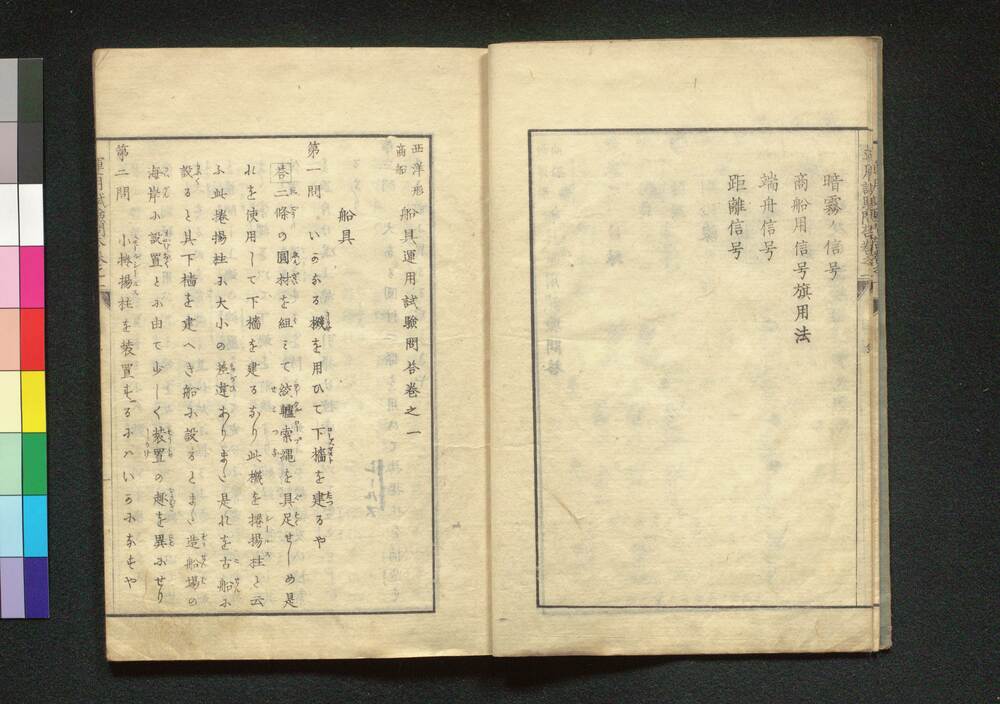 暗霧信号
商船用信号旗用法
端舟信号
距離信号
西洋形商船 船具運用試験問答巻之一
船具
第一問 いかなる機を用ひて下檣を建るや
答 三條の圓材を組ミて絞轤索縄を具足せしめ是
れを使用して下檣を建るなり此機を捲揚柱と云
ふ此捲揚柱に大小の差違ありまた是れを古船に
設ると其下檣を建へき船に設るとまた造船場の
海岸に設置とに由て少しく装置の趣を異にせり
第二問 小捲揚柱を装置するにハいかにすや